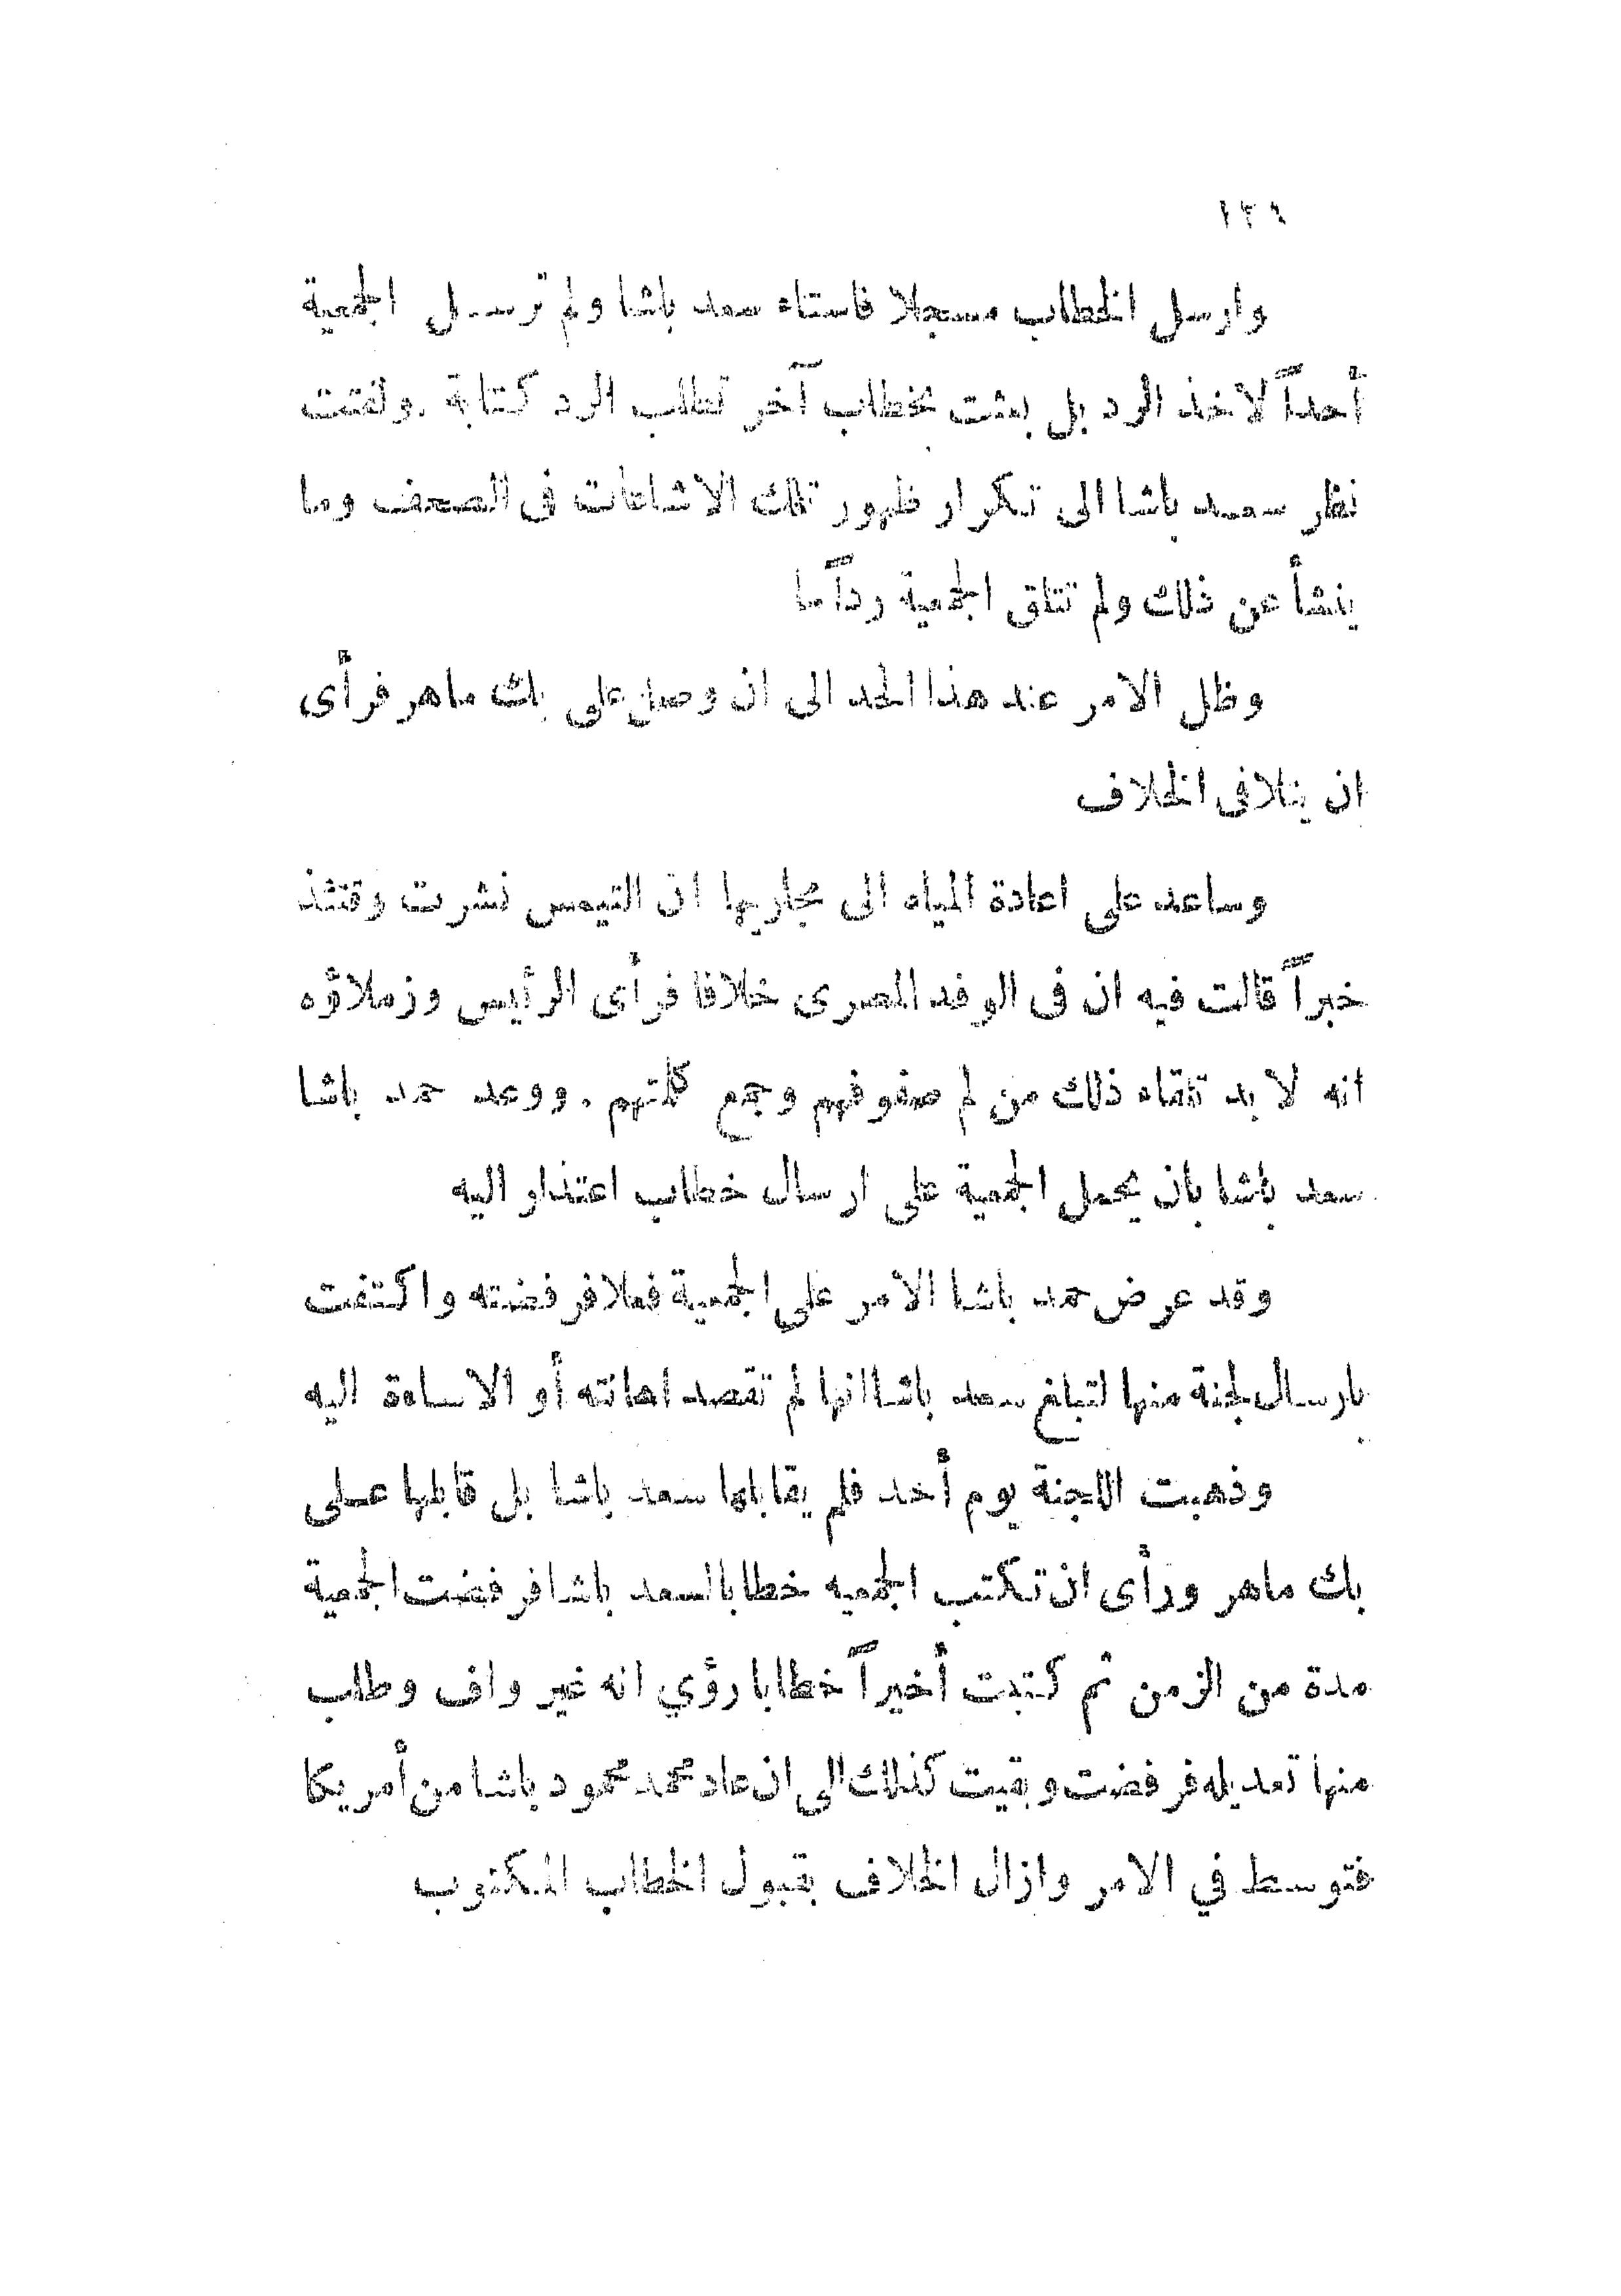 ١٢٩
وارسل الخطاب مسجلا فاستاء سعد باشا ولم ترسل الجمعية
أحداً لاخذ الرد بل بعثت بخطاب آخر تطلب الرد كتابة . ولفتت
نظر سعد باشا الى تكرار ظهور تلك الاشاعات فى الصحف وما
ينشأ عن ذلك ولم تتلق الجمعية رداً ما
وظل الامر عند هذا الحد الى ان وصل على بك ماهر فرأى
ان يتلافى الخلاف
وساعد على اعادة المياه الى مجاريها ان التيمس نشرت وقتئذ
خبراً قالت فيه ان فى الوفد المصرى خلافا فرأى الرئيس وزملاؤه
انه لا بد تلقاء ذلك من لم صفوفهم وجمع كلمتهم . ووعد حمد باشا
سعد باشا بان يحمل الجمعية على ارسال خطاب اعتذار اليه
وقد عرض حمد باشا الامر على الجمعية فعلا فرفضته واكتفت
بارسال لجنة منها لتبلغ سعد باشا انها لم تقصد اهانته أو الاساءة اليه
وذهبت اللجنة يوم أحد فلم يقابلها سعد باشا بل قابلها على
بك ماهر ورأى ان تكتب الجمعيه خطابا لسعد باشا فرفضت الجمعية
مدة من الزمن ثم كتبت أخيراً خطابا رؤي انه غير واف وطلب
منها تعديله فرفضت وبقيت كذلك الى ان عاد محمد محمود باشا من أمريكا
فتوسط في الامر وازال الخلاف بقبول الخطاب المكتوب